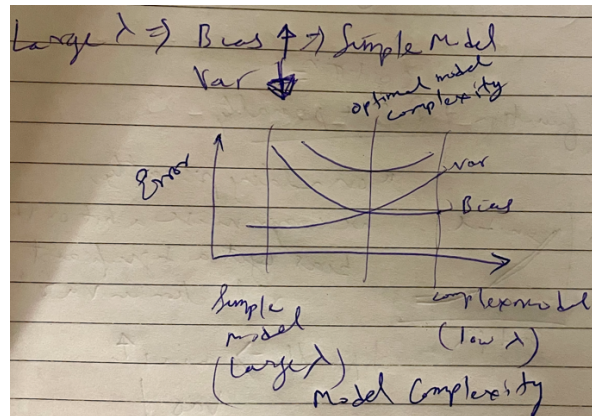 Large λ ⇒ Bias ↑ ⇒ Simple Model
Var ↓
optimal model
complexity
Error
Var
Bias
Simple
model
(Large λ)
complex model
(low λ)
Model Complexity